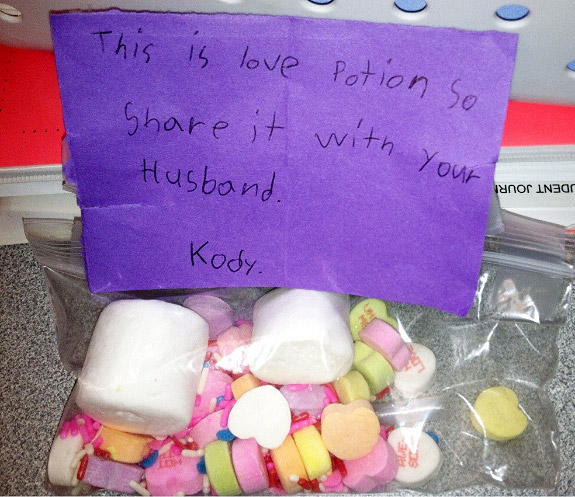 This is love Potion So
Share it with your
Husband.
Kody.
UDENT JOURN
HOT